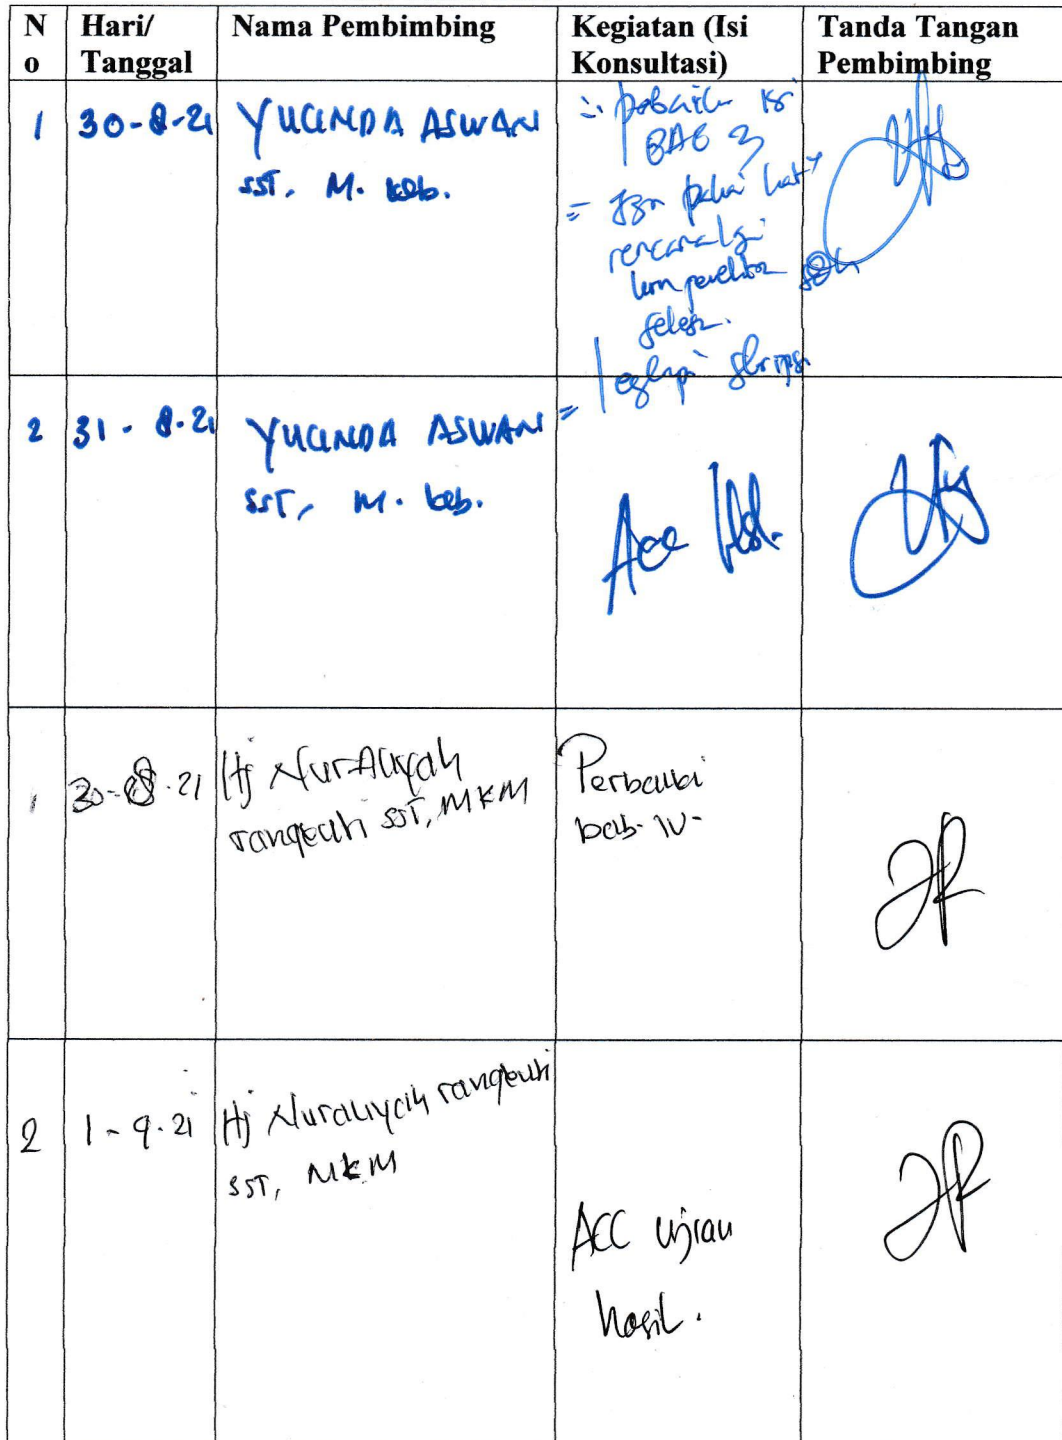 No Hari/Tanggal Nama Pembimbing Kegiatan (Isi Konsultasi) Tanda Tangan Pembimbing
1 30-8-21 YULINDA ASWAN
SST, M. keb.
BAB 3
rencana lgi
selesai.
skripsi
2 31-8-21 YULINDA ASWAN
SST, M. keb.
Acc Hsl.
1 30-08-21 Hj Nur Aliyah rangkuti SST, MKM
Perbaiki
bab-IV-
2 1-9-21 Hj Nuraliyah rangkuti
SST, MKM
ACC ujian
hasil.